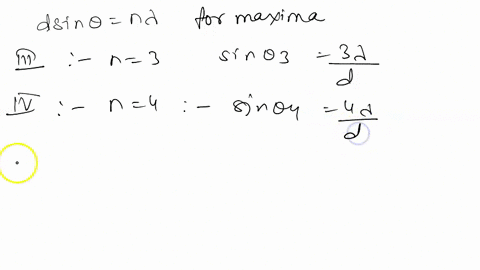 dsinθ = nλ for maxima
III :- n=3 sinθ3 = 3λ/d
IV :- n=4 :- sinθ4 = 4λ/d